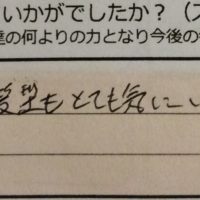 いかがでしたか？（ス
達の何よりの力となり今後の
髪型もとても気にい